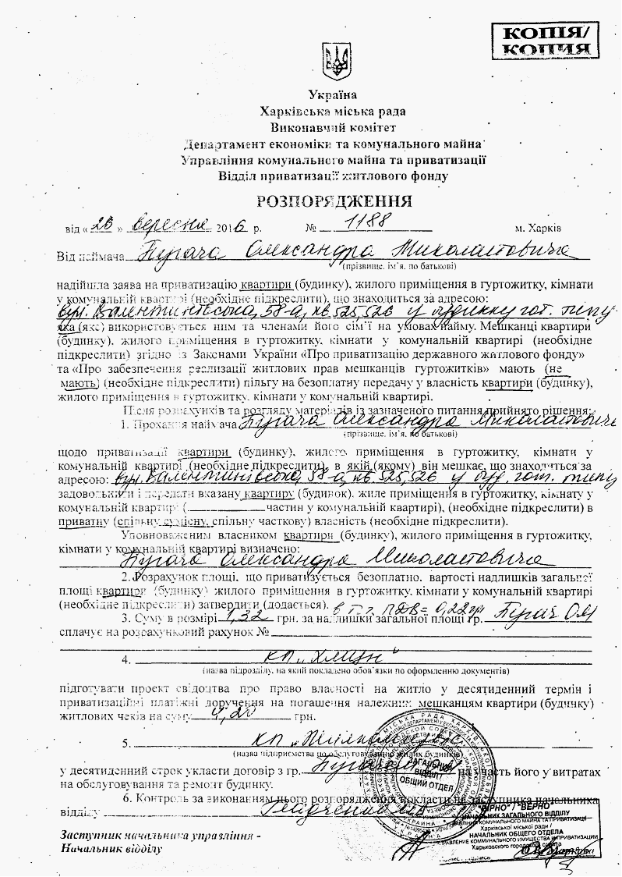 КОПІЯ/
КОПИЯ
Україна
Харківська міська рада
Виконавчий комітет
Департамент економіки та комунального майна
Управління комунального майна та приватизації
Відділ приватизації житлового фонду
РОЗПОРЯДЖЕННЯ
від « 20 » вересня 2016 р. № 1188 м. Харків
Від наймача Пугача Олександра Миколайовича
(прізвище, ім'я, по батькові)
надійшла заява на приватизацію квартири (будинку), жилого приміщення в гуртожитку, кімнати
у комунальній квартирі (необхідне підкреслити), що знаходиться за адресою:
вул. Валентинівська, 58-а, кв. 525, 526 у будинку гот. типу
яка (яке) використовується ним та членами його сім'ї на умовах найму. Мешканці квартири
(будинку), жилого приміщення в гуртожитку, кімнати у комунальній квартирі (необхідне
підкреслити) згідно із Законами України «Про приватизацію державного житлового фонду»
та «Про забезпечення реалізації житлових прав мешканців гуртожитків» мають (не
мають) (необхідне підкреслити) пільгу на безоплатну передачу у власність квартири (будинку),
жилого приміщення в гуртожитку, кімнати у комунальній квартирі.
Після розрахунків та розгляду матеріалів із зазначеного питання прийнято рішення:
1. Прохання наймача Пугача Олександра Миколайовича
(прізвище, ім'я, по батькові)
щодо приватизації квартири (будинку), жилого приміщення в гуртожитку, кімнати у
комунальній квартирі (необхідне підкреслити), в якій (якому) він мешкає, що знаходиться за
адресою: вул. Валентинівська, 58-а, кв. 525, 526 у гот. типу
задовольнити і передати вказану квартиру (будинок), жиле приміщення в гуртожитку, кімнату у
комунальній квартирі ( частин у комунальній квартирі), (необхідне підкреслити) в
приватну (спільну сумісну, спільну часткову) власність (необхідне підкреслити).
Уповноваженим власником квартири (будинку), жилого приміщення в гуртожитку,
кімнати у комунальній квартирі визначено:
Пугача Олександра Миколайовича
2. Розрахунок площі, що приватизується безоплатно, вартості надлишків загальної
площі квартири (будинку) жилого приміщення в гуртожитку, кімнати у комунальній квартирі
(необхідне підкреслити) затвердити (додається). в т.ч. ПДВ = 0,22 грн
3. Суму в розмірі 1,32 грн. за надлишки загальної площі гр. Пугач О.М
сплачує на розрахунковий рахунок №
4. КП „
(назва підрозділу, на який покладено обов'язки по оформленню документів)
підготувати проект свідоцтва про право власності на житло у десятиденний термін і
приватизаційні платіжні доручення на погашення належних мешканцям квартири (будинку)
житлових чеків на суму грн.
5. КП „Жилкомсервіс"
(назва підприємства по обслуговуванню жилих будинків)
у десятиденний строк укласти договір з гр. Пугачом на участь його у витратах
на обслуговування та ремонт будинку.
6. Контроль за виконанням цього розпорядження покласти на заступника начальника
відділу
ЗАГАЛЬНИЙ ВІДДІЛ
ОБЩИЙ ОТДЕЛ
УКРАИНА
"ВІРНО" / "ВЕРНО"
НАЧАЛЬНИК ЗАГАЛЬНОГО ВІДДІЛУ
Харківської міської ради /
НАЧАЛЬНИК ОБЩЕГО ОТДЕЛА
Заступник начальника управління -
Начальник відділу